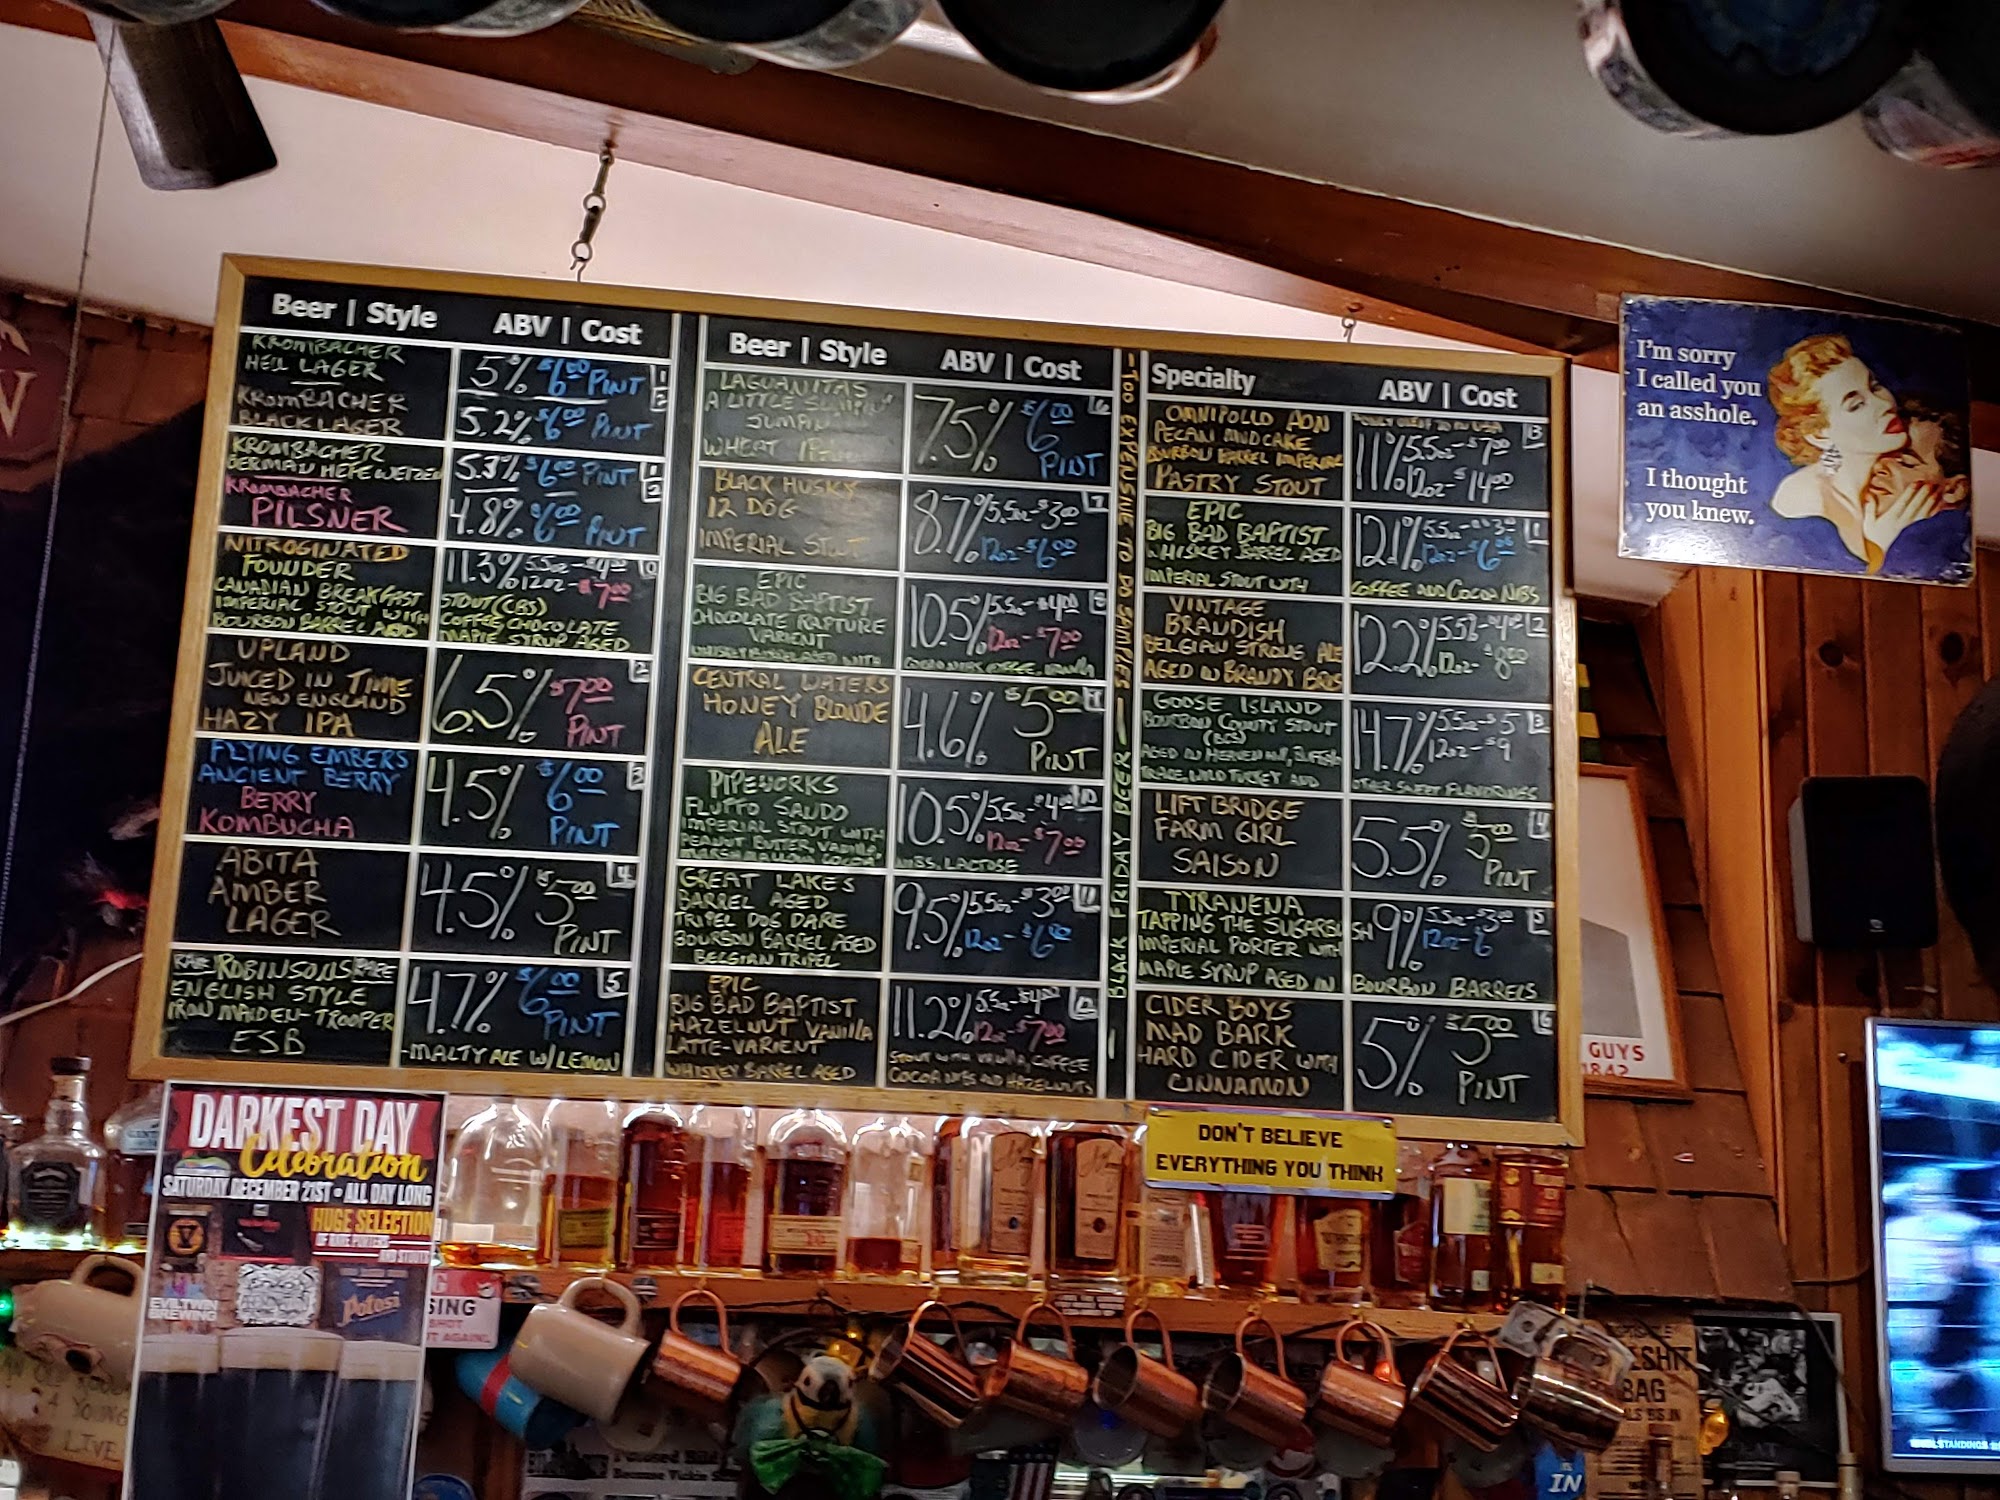 Beer | Style
ABV | Cost
KROMBACHER
HELL LAGER
5% $6.00 PINT
1
KROMBACHER
BLACK LAGER
5.2% $6.00 PINT
2
KROMBACHER
GERMAN HEFEWEIZEN
5.3% $6.00 PINT
1
KROMBACHER
PILSNER
4.8% $6.00 PINT
2
NITROGINATED
FOUNDER
CANADIAN BREAKFAST
IMPERIAL STOUT WITH
BOURBON BARREL AGED
11.3% 5.5oz-$4.00
12oz-$7.00
STOUT (CBS)
COFFEE CHOCOLATE
MAPLE SYRUP AGED
UPLAND
JUICED IN TIME
NEW ENGLAND
HAZY IPA
6.5% $7.00
PINT
2
FLYING EMBERS
ANCIENT BERRY
BERRY
KOMBUCHA
4.5% $6.00
PINT
3
ABITA
AMBER
LAGER
4.5% $5.00
PINT
4
RARE ROBINSONS RARE
ENGLISH STYLE
IRON MAIDEN-TROOPER
ESB
4.7% $6.00
PINT
5
-MALTY ALE W/LEMON
Beer | Style
ABV | Cost
LAGUANITAS
A LITTLE SUMPIN'
JUMPIN
WHEAT
7.5% $6.00
PINT
6
BLACK HUSKY
12 DOG
IMPERIAL STOUT
8.7% 5.5oz-$3.00
12oz-$6.00
7
EPIC
BIG BAD BAPTIST
CHOCOLATE RAPTURE
VARIENT
WHISKEY BARREL AGED WITH
10.5% 5.5oz-$4.00
12oz-$7.00
8
COCOA NIBS, COFFEE, VANILLA
CENTRAL WATERS
HONEY BLONDE
ALE
4.6% $5.00
PINT
9
PIPEWORKS
FLUFFO SANDO
IMPERIAL STOUT WITH
PEANUT BUTTER, VANILLA,
MARSHMALLOW, COCOA
10.5% 5.5oz-$4.00
12oz-$7.00
10
NIBS, LACTOSE
GREAT LAKES
BARREL AGED
TRIPEL DOG DARE
BOURBON BARREL AGED
BELGIAN TRIPEL
9.5% 5.5oz-$3.00
12oz-$6.00
11
EPIC
BIG BAD BAPTIST
HAZELNUT VANILLA
LATTE-VARIENT
WHISKEY BARREL AGED
11.2% 5.5oz-$4.00
12oz-$7.00
12
STOUT WITH VANILLA, COFFEE
COCOA NIBS AND HAZELNUTS
BLACK FRIDAY BEER - TOO EXPENSIVE TO DO SAMPLES -
Specialty
ABV | Cost
OMNIPOLLO AON
PECAN MUDCAKE
BOURBON BARREL IMPERIAL
PASTRY STOUT
11% 5.5oz-$7.00
12oz-$14.00
13
EPIC
BIG BAD BAPTIST
WHISKEY BARREL AGED
IMPERIAL STOUT WITH
12.1% 5.5oz-$3.00
12oz-$6.00
1
COFFEE AND COCOA NIBS
VINTAGE
BRAUDISH
BELGIAN STRONG ALE
AGED IN BRANDY BRLS
12.2% 5.5oz-$4.00
12oz-$8.00
2
GOOSE ISLAND
BOURBON COUNTY STOUT
(BCS)
AGED IN HEAVEN HILL, BUFFALO
TRACE, WILD TURKEY AND
14.7% 5.5oz-$5
12oz-$9
3
OTHER SWEET FLAVORINGS
LIFT BRIDGE
FARM GIRL
SAISON
5.5% $5.00
PINT
4
TYRANENA
TAPPING THE SUGARBUSH
IMPERIAL PORTER WITH
MAPLE SYRUP AGED IN
9% 5.5oz-$3.00
12oz-$6
5
BOURBON BARRELS
CIDER BOYS
MAD BARK
HARD CIDER WITH
CINNAMON
5% $5.00
PINT
6
I'm sorry
I called you
an asshole.
I thought
you knew.
GUYS
1842
DON'T BELIEVE
EVERYTHING YOU THINK
DARKEST DAY
Celebration
SATURDAY DECEMBER 21ST • ALL DAY LONG
HUGE SELECTION
OF RARE PORTERS
AND STOUTS
EVILTWIN
BREWING
Potosi
SING
SHOT
T AGAIN!
A YOUNG
LIVE
BAG
IN
STANDINGS